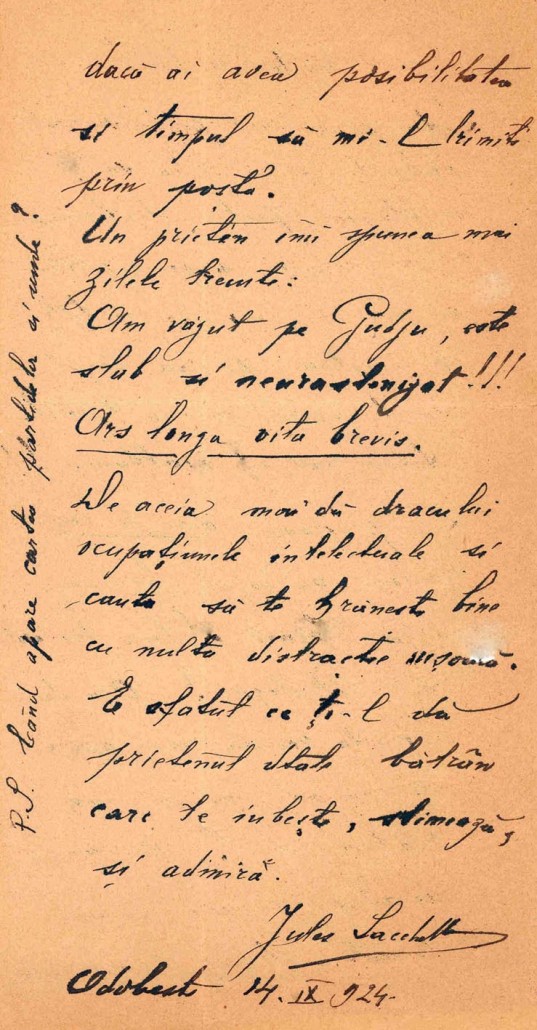 dacă ai avea posibilitatea
si timpul să mi-l trimiti
prin postă.
Un prieten îmi spunea mai
zilele trecute:
Am văzut pe Gudju, este
slab si neurastenizat!!!
Ars longa vita brevis.
De aceia mai dă dracului
ocupațiunile intelectuale si
cauta să te hrănesti bine
cu multa distractie usoară.
E sfatul ce ți-l dă
prietenul dtale bătrân
care te iubește, stimează,
și admiră.
Jules Sacchetti
Odobesti 14. IX 924.
P.S. Când apare cartea partidelor si unde?